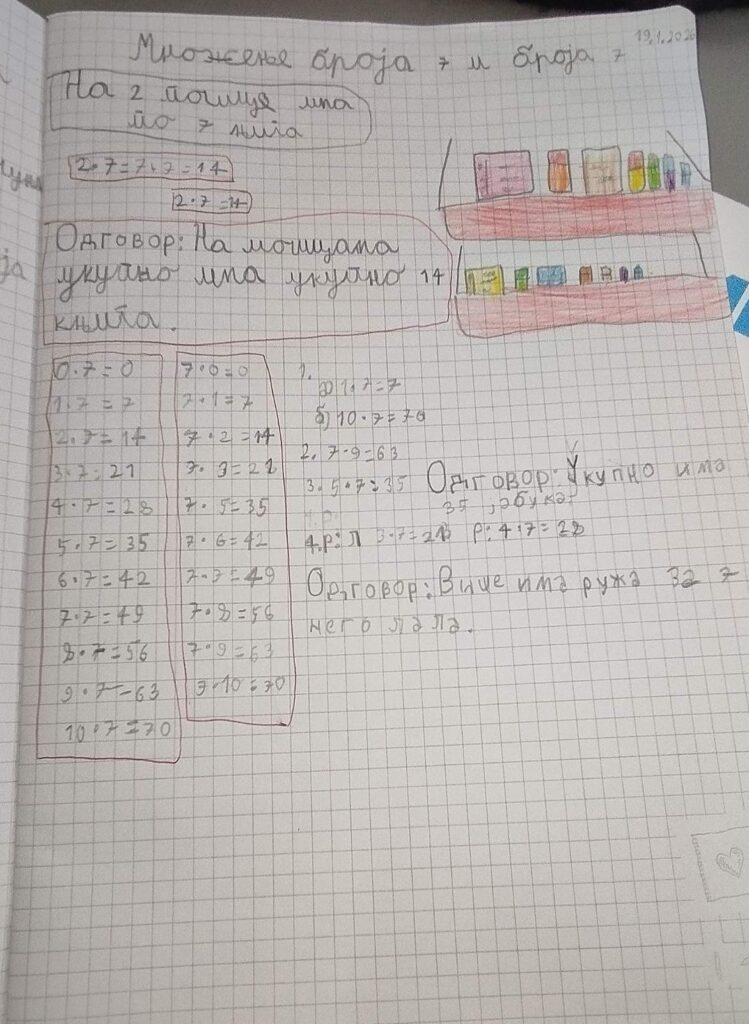 19.1.2026
Множење броја 7 и броја 7
На 2 полице има
по 7 књига
2·7=7·7=14
2·7=14
Одговор: На полицама
укупно има укупно 14
књига.
0·7=0
1·7=7
2·7=14
3·7=21
4·7=28
5·7=35
6·7=42
7·7=49
8·7=56
9·7=63
10·7=70
7·0=0
7·1=7
7·2=14
7·3=21
7·5=35
7·6=42
7·7=49
7·8=56
7·9=63
7·10=70
1.
а) 1·7=7
б) 10·7=70
2. 7·9=63
3. 5·7=35 Одговор: Укупно има
35 јабука
4.р: Л 3·7=21 Р: 4·7=28
Одговор: Више има ружа за 7
него лала.